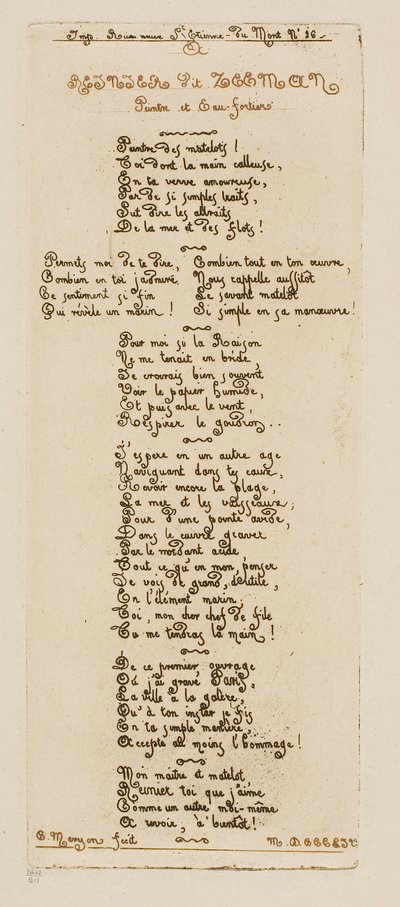 Imp. Rue neuve St Etienne-du Mont No 26-
A
REINIER dit ZEEMAN
Peintre et Eau-fortier
Peintre des matelots !
Toi dont la main calleuse,
En ta verve amoureuse,
Par de si simples traits,
Sut dire les attraits
De la mer et des flots !
Permets moi de te dire,
Combien en toi j'admire
Ce sentiment si fin
Qui révèle un marin !
Combien tout en ton œuvre,
Nous rappelle aussitôt
Le savant matelot
Si simple en sa manœuvre !
Pour moi si la Raison
Ne me tenait en bride,
Je croirais bien souvent,
Voir le papier humide,
Et puis avec le vent,
Respirer le goudron . .
J'espere en un autre age
Naviguant dans tes eaux,
Revoir encore la plage,
La mer et les vaisseaux ;
Pour d'une pointe avide,
Dans le cuivre graver
Par le mordant acide,
Tout ce qu'en mon penser
Je vois de grand, d'utile,
En l'élément marin,
Toi, mon cher chef de file
Tu me tendras la main !
De ce premier ouvrage
Où j'ai gravé Paris,
La ville à la galère,
Qu'à ton instar je fis
En ta simple manière,
Accepte au moins l'hommage !
Mon maitre et matelot
REINIER toi que j'aime
Comme un autre moi-même
Au revoir, à bientôt !
C. Meryon fecit
M. DCCCLIV